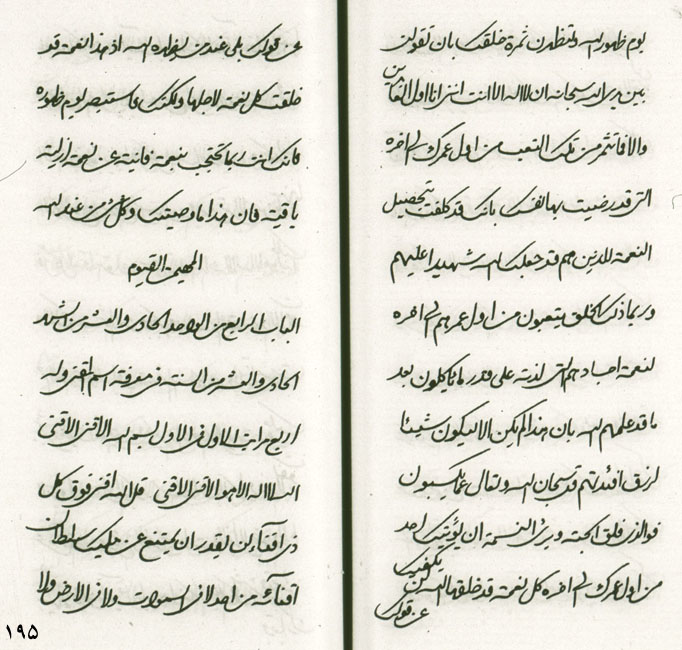 يوم ظهور الله ولتظهرن ثمرة خلقك بان تقولن
بين يدي الله سبحانه ان لا اله الا انت انني انا اول العابدين
والا فانثمر من تلك التعب من اول عمرك الى اخره
التي قد رضيت بها لنفسك بانك قد كلفت بتحصيل
النعمة للذينهم قد جعلك الله شهيدا عليهم
وربما ذلك الخلق يتعبون من اول عمرهم الى اخره
لنعمة اجسادهم التي لذته على قدر ما ياكلون بعد
ما قد علمهم الله بان هذا لم يكن الا ليكون شيئا
لرزق افئدتهم قد سبحان الله وتعالى عما يكسبون
فوالذي فلق الحبة وبرئ النسمة ان يؤتيك احد
من اول عمرك الى اخره كل نعمة قد خلقها الله لن يكفيك
عن قولك
عن قولك بلى عند من يظهره الله اذ هذا النعمة قد
خلقت كل نعمة لاجلها ولكنك ما ستبصر يوم ظهوره
فانك انت ربما تحتجب بنعمة فانية عن نعمة ازلية
باقية فان هذا ما وصيتك وكل شئ من عند الله
المهيمن القيوم
الباب الرابع من الواحد الحادي والعشر من الشهر
الحادي والعشر من السنة في معرفة اسم المقني وله
اربع مراتب الاول في الاول بسم الله الاقنى الاقنى
الله لا اله الا هو الاقنى الاقنى قل الله اقنى فوق كل
ذي اقناء لن يقدر ان يمتنع عن مليك سلطان
اقنائه من احد لا في السموات ولا في الارض ولا
۱۹۵